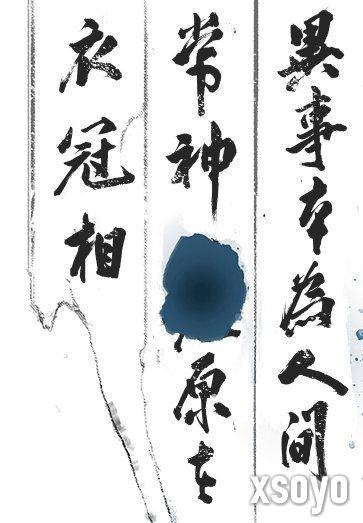 異事本為人間
常神 原在
衣冠相
xsoyo